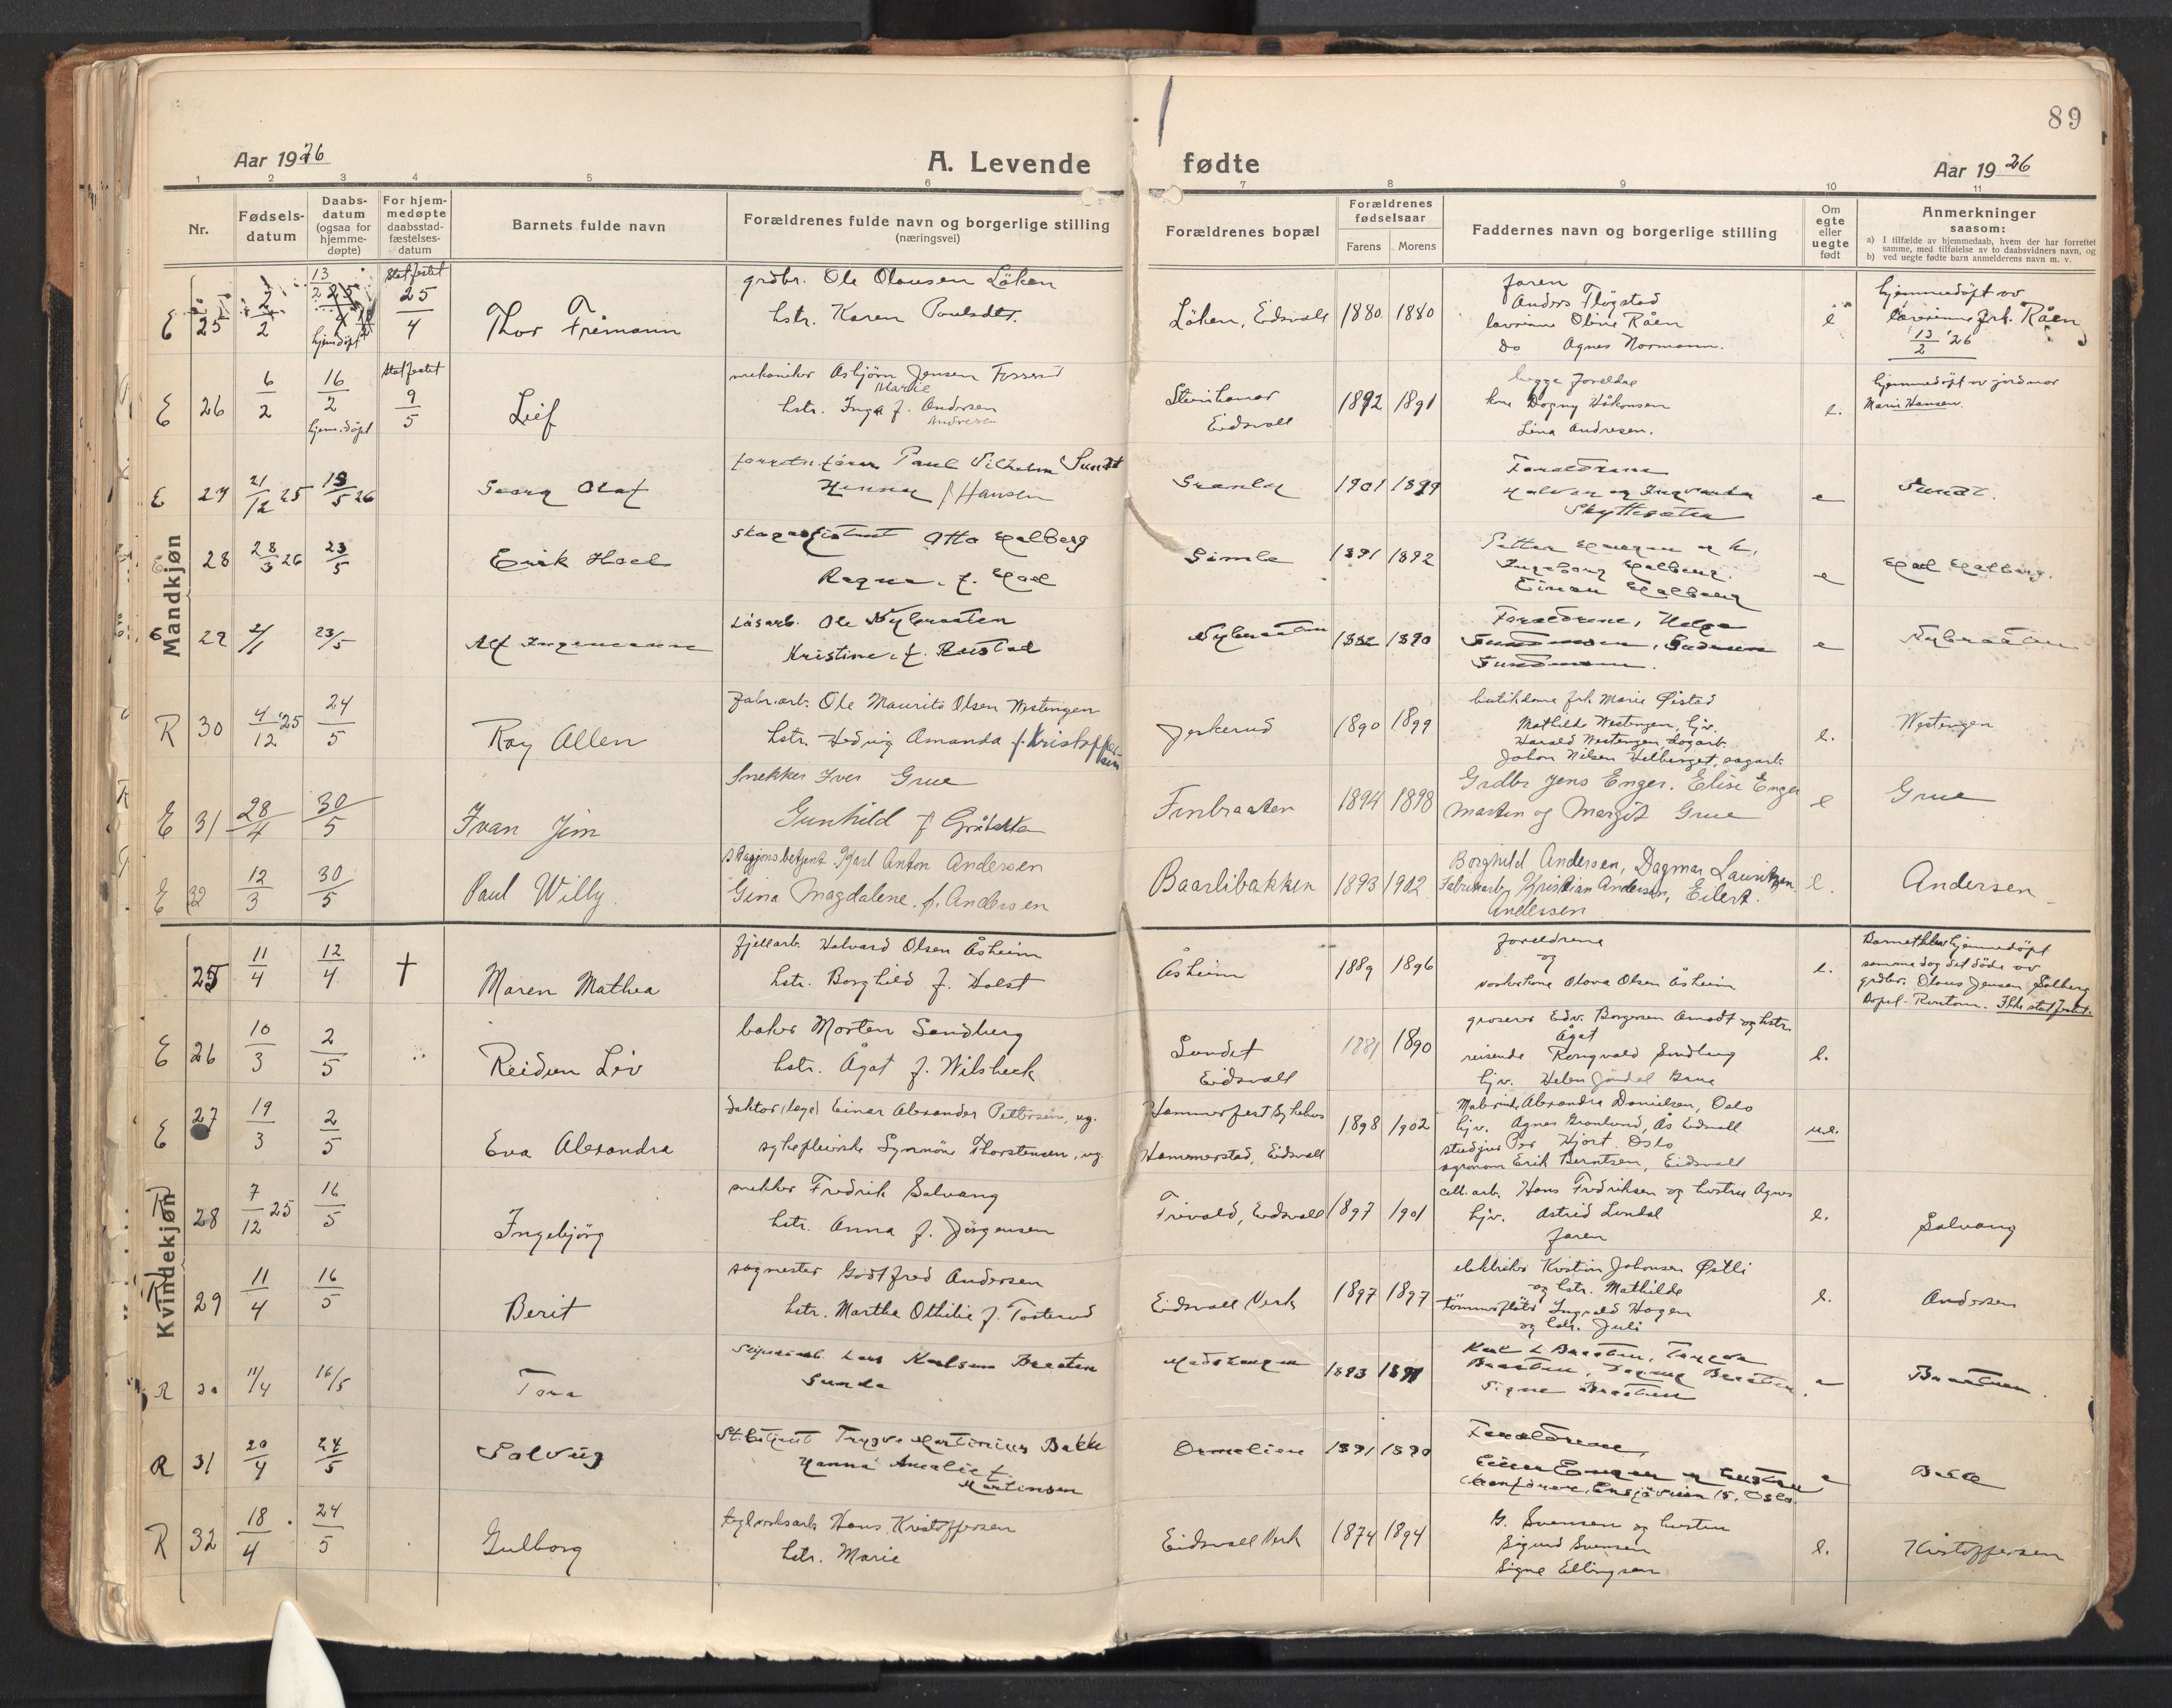 89
Aar 1926
A. Levende fødte
Aar 1926
1 2 3 4 5 6 7 8 9 10 11
Nr.
Fødsels-
datum
Daabs-
datum
(ogsaa for
hjemme-
døpte)
For hjem-
medøpte
daabsstad-
fæstelses-
datum
Barnets fulde navn
Forældrenes fulde navn og borgerlige stilling
(næringsvei)
Forældrenes bopæl
Forældrenes
fødselsaar
Farens Morens
Faddernes navn og borgerlige stilling
Om
egte
eller
uegte
født
Anmerkninger
saasom:
a) I tilfælde av hjemmedaab, hvem der har forrettet
samme, med tilføielse av to daabsvidners navn, og
b) ved uegte fødte barn anmelderens navn m. v.
Mandkjøn
E 25 2/2 13/2 hjemdöpt Statfestet 25/4
Thor Fremann
grdbr. Ole Olausen Löken
hstr. Karen Paulsdtr.
Löken, Eidsvoll 1880 1880
faren
Anders Flögstad
lærerinne Oline Råen
Do Agnes Normann.
e
hjemmedöpt av
lærerinne frk. Råen
13/2 '26
E 26 6/2 16/2 hjem.döpt Statfestet 9/5
Leif
mekaniker Asbjörn Jensen Fosserud
Marie
hstr. Inga f. Andersen
Andresen
Eidsvoll 1892 1891
begge foreldre
kone Dagny Håkonsen
Lina Andresen.
e.
hjemmedöpt av jordmor
Marie Hansen.
E 27 21/12 25 13/5 26
Georg Olaf
Paul Vilhelm Sundt
Henny f Hansen
Granly 1901 1899
Foreldrene
Skyttesæter
e
Sundt.
28 28/3 26 23/5
Erik Hoel
skogassistent Otto Halberg
Ragna. f. Hoel
Gimle 1891 1892
Ingeborg Halberg.
Einar Halberg
e
Hoel Halberg.
29 2/1 23/5
Alf Ingemann
Løsarb. Ole Nybraaten
Kristine. f. Rustad
Nybraaten 1882 1890
Foreldrene, Helga
e
Nybraaten
R 30 4/12 '25 24/5
Roy Allen
fabr.arb. Ole Maurits Olsen Westengen
hstr. Hedvig Amanda f. Kristoffer-
sen
Jerkerud 1890 1899
butikdame frk. Marie Øistad
Mathilde Westengen, hjv.
Harald Westengen, dagarb.
Johan Nilsen Helberget, sagarb.
e.
Westengen
E 31 28/4 30/5
Ivan Jim
Snekker Iver Grue
Gunhild f
Finbraaten 1894 1898
Grdbr Jens Enger. Elise Enger
Martin og Margit Grue
e
Grue
E 32 12/3 30/5
Paul Willy.
Stasjonsbetjent Karl Anton Andersen
Gina Magdalene. f. Andersen
Baarlibakken 1893 1902
Borghild Andersen, Dagmar Lauritzen.
Fabrikarb. Kristian Andersen, Eilert.
Andersen
e.
Andersen
Kvindekjøn
25 11/4 12/4 †
Maren Mathea
fjellarb. Halvard Olsen Åsheim
hstr. Borghild f. Holst
Åsheim 1889 1896
foreldrene
og
Olava Olsen Åsheim
e.
Barnet blev hjemmedöpt
samme dag det døde av
grdbr. Olaus Jensen Solberg
Ikke statfestet.
E 26 10/3 2/5
Reidun Liv
baker Morten Sandberg
hstr. Ågot f. Wilsbeck
Sundet
Eidsvoll 1881 1890
groserer Edv. Borgersen Amodt og hstr.
Ågot
reisende Rongvald Sandberg
hjv. Helen Grue
e.
E 27 19/3 2/5
Eva Alexandra
doktor (læge) Einar Alexander Pettersen, ug.
sykepleierske Synnöve Thorstensen, ug.
Hammerfest Sykehus
Hammerstad, Eidsvoll 1898 1902
Alexandra Danielsen, Oslo
hjv. Agnes Grönlund, Ås Eidsvoll
studjur Per Hjort Oslo
agronom Erik Berntsen, Eidsvoll
u.e.
R 28 7/12 25 16/5
Ingebjörg
snekker Fredrik Solvang
hstr. Anna f. Jörgensen
Trivold, Eidsvoll 1897 1901
cell. arb. Hans Fredriksen og hustru Agnes
hjv. Astrid Lundal
faren
e.
Solvang
R 29 11/4 16/5
Berit
sagmester Godtfred Andersen
hstr. Martha Othilie f. Tosterud
Eidsvoll Verk 1897 1897
elektriker Kristin Johansen Østli
og hstr. Mathilde
tömmerfløter Ingvald Hagen
og hstr. Juli
e.
Andersen
R 30 11/4 16/5
Tora
Lars Karlsen Braaten
Gunda
1893 1891
Karl L Braaten,
Braaten, Dagny Braaten
Signe Braaten
e
Braaten.
R 31 20/4 24/5
Solveig
St.betjent Trygve Martinius Bakke
Hanna Amalie f.
Martinsen
Ormelien 1891 1890
Foreldrene,
Einar Enger og hustru
Ensjöveien 15. Oslo.
e
Bakke
R 32 18/4 24/5
Gulborg
teglverksarb Hans Kristoffersen
hstr. Marie
Eidsvoll Verk 1874 1894
G. Svensen og hustru
Sigurd Svensen
Signe Ellingsen
e.
Kristoffersen